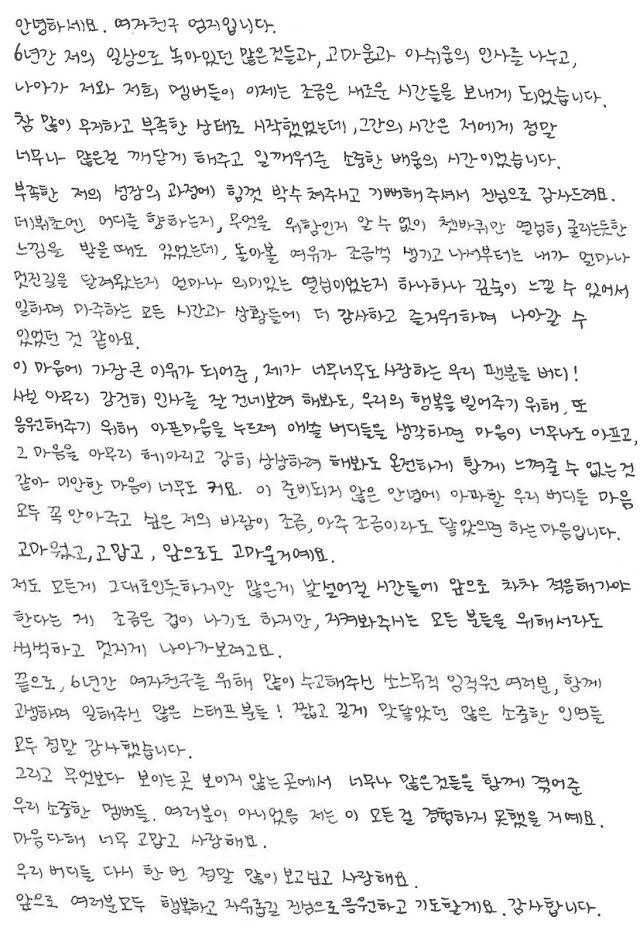 안녕하세요. 여자친구 엄지입니다.
6년간 저의 일상으로 녹아있던 많은것들과, 고마움과 아쉬움의 인사를 나누고,
나아가 저와 저희 멤버들이 이제는 조금은 새로운 시간들을 보내게 되었습니다.
참 많이 무지하고 부족한 상태로 시작했었는데, 그간의 시간은 저에게 정말
너무나 많은걸 깨닫게 해주고 일깨워준 소중한 배움의 시간이었습니다.
부족한 저의 성장의 과정에 힘껏 박수 쳐주시고 기뻐해주셔서 진심으로 감사드려요.
데뷔초엔 어디를 향하는지, 무엇을 위함인지 알 수 없이 쳇바퀴만 열심히 굴리는듯한
느낌을 받을때도 있었는데, 돌아볼 여유가 조금씩 생기고 나서부터는 내가 얼마나
멋진길을 달려왔는지 얼마나 의미있는 열심이었는지 하나하나 깊숙이 느낄 수 있어서
일하며 마주하는 모든 시간과 상황들에 더 감사하고 즐거워하며 나아갈 수
있었던 것 같아요.
이 마음에 가장 큰 이유가 되어준, 제가 너무너무도 사랑하는 우리 팬분들 버디!
사실 아무리 강건히 인사를 잘 건네보려 해봐도, 우리의 행복을 빌어주기 위해, 또
응원해주기 위해 아픈마음을 누르려 애쓸 버디들을 생각하면 마음이 너무나도 아프고,
그 마음을 아무리 헤아리고 감히 상상하려 해봐도 온전하게 함께 느껴줄 수 없는것
같아 미안한 마음이 너무도 커요. 이 준비되지 않은 안녕에 아파할 우리 버디들 마음
모두 꼭 안아주고 싶은 저의 바람이 조금, 아주 조금이라도 닿았으면 하는 마음입니다.
고마웠고, 고맙고, 앞으로도 고마울거예요.
저도 모든게 그대로인듯하지만 많은게 낯설어질 시간들에 앞으로 차차 적응해가야
한다는 게 조금은 겁이 나기도 하지만, 지켜봐주시는 모든 분들을 위해서라도
씩씩하고 멋지게 나아가보려고요.
끝으로, 6년간 여자친구를 위해 많이 수고해주신 쏘스뮤직 임직원 여러분, 함께
고생하며 일해주신 많은 스태프분들! 짧고 길게 맞닿았던 많은 소중한 인연들
모두 정말 감사했습니다.
그리고 무엇보다 보이는곳 보이지 않는 곳에서 너무나 많은것들을 함께 겪어준
우리 소중한 멤버들. 여러분이 아니었음 저는 이 모든걸 경험하지 못했을 거예요.
마음 다해 너무 고맙고 사랑해요.
우리 버디들 다시 한 번 정말 많이 보고싶고 사랑해요.
앞으로 여러분모두 행복하고 자유롭길 진심으로 응원하고 기도할게요. 감사합니다.